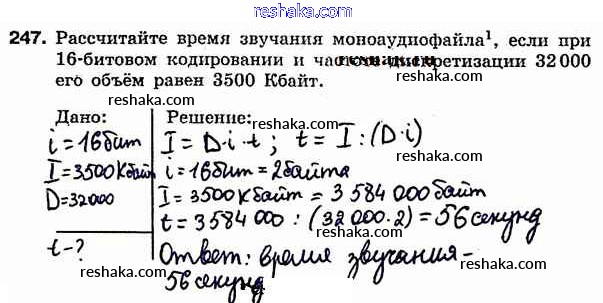 247. Рассчитайте время звучания моноаудиофайла¹, если при
16-битовом кодировании и частоте дискретизации 32 000
его объём равен 3500 Кбайт.
Дано:
i = 16 бит
I = 3500 Кбайт
D = 32000
t - ?
Решение:
I = D·i·t ; t = I : (D·i)
i = 16 бит = 2 байта
I = 3500 Кбайт = 3 584 000 байт
t = 3 584 000 : (32 000·2) = 56 секунд
Ответ: время звучания -
56 секунд
reshaka.com
reshaka.com
reshaka.com
reshaka.com
reshaka.com
reshaka.com
reshaka.com
reshaka.com
reshaka.com
reshaka.com